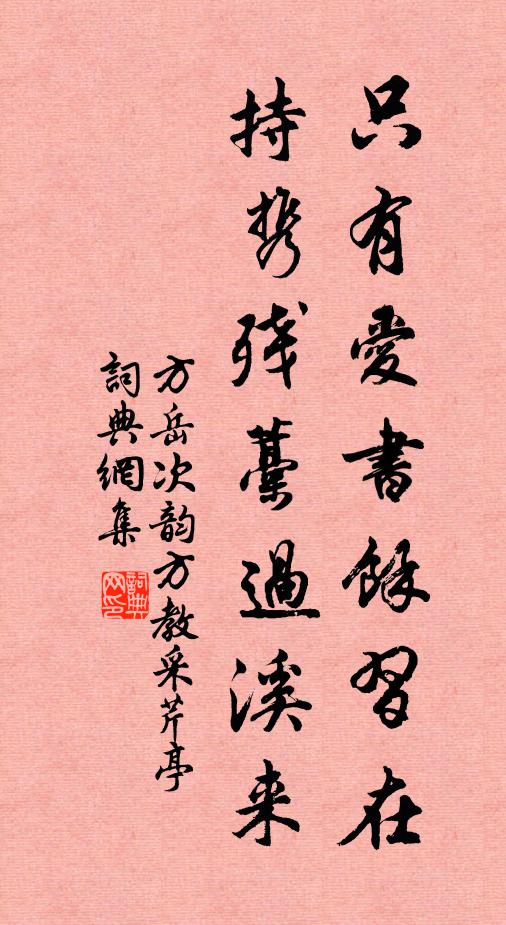 只有愛書餘習在
持携残藁過溪来
方岳次韵方教采芹亭
詞典網集
詞典网印